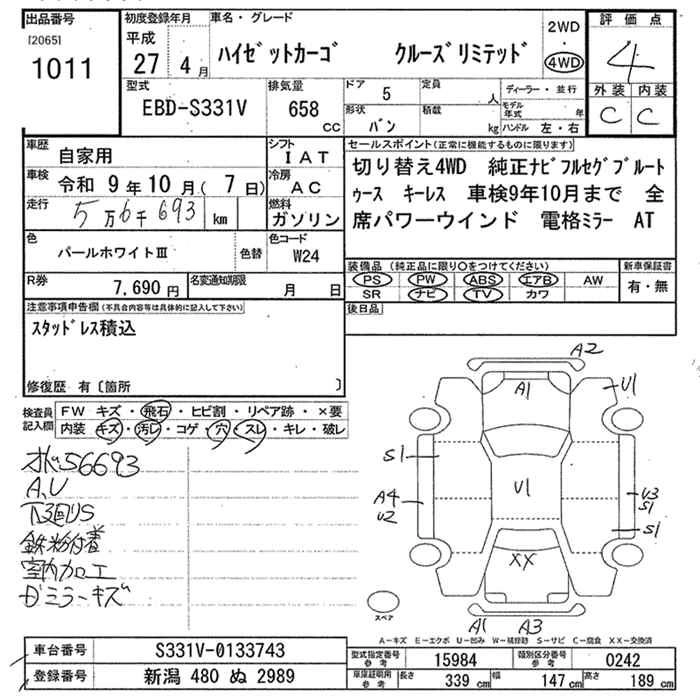 出品番号
[2065]
1011
初度登録年月
平成
27 4月
車名・グレード
ハイゼットカーゴ クルーズリミテッド
2WD
・
4WD
評価点
4
外装 内装
C C
型式
EBD-S331V
排気量
658
CC
ドア 5
定員 人
形状 バン
積載 kg
ディーラー・並行
モデル年式 年
ハンドル 左・右
車歴
自家用
シフト
IAT
車検
令和 9年 10月( 7日)
冷房
AC
走行
5万6千693 km
燃料
ガソリン
色
パールホワイトⅢ
色替
色コード
W24
R券
7,690円
名変通知期限
月 日
セールスポイント(正常に機能するものに限ります)
切り替え4WD 純正ナビフルセグブルート
ゥース キーレス 車検9年10月まで 全
席パワーウインド 電格ミラー AT
装備品(純正品に限り〇をつけてください)
PS PW ABS エアB AW
SR ナビ TV カワ
新車保証書
有・無
後日品
注意事項申告欄(不具合内容等は具体的に記入して下さい)
スタッドレス積込
修復歴 有〔箇所 〕
検査員
記入欄
FW キズ・飛石・ヒビ割・リペア跡・×要
内装 キズ・汚レ・コゲ・穴・スレ・キレ・破レ
56693
A,U
下回りS
鉄粉付着
室内加工
ミラーキズ
A2
A1
U1
S1
A4
U2
U1
U3
S1
S1
XX
A1 A3
スペア
A-キズ E-エクボ U-凹み W-補修跡 S-サビ C-腐食 XX-交換済
車台番号
S331V-0133743
登録番号
新潟 480 ぬ 2989
型式指定番号
参考
15984
類別区分番号
参考
0242
車庫証明用
参考
長さ 339 cm
幅 147 cm
高さ 189 cm